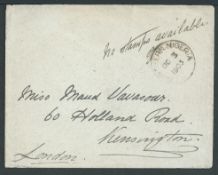 No stamps available
NIGERIA
Miss Maud Vavasour,
60 Holland Road.
Kensington.
London.